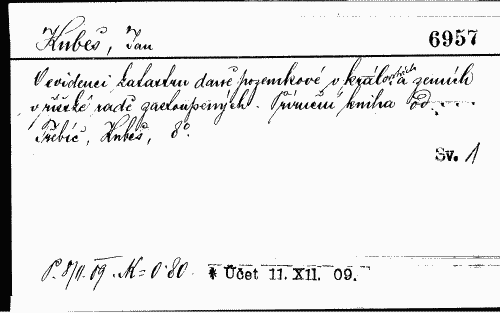 Kubeš, Jan 6957
O evidenci katastru daně pozemkové v královstvích a zemích
v říšské radě zastoupených. Příruční kniha od....
Třebíč, Kubeš, 8°.
Sv. 1
P. 8/II. 09. K = 0·80. * Účet 11. XII. 09.